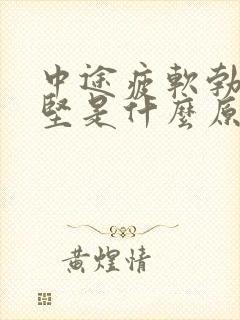 中途疲軟勃
堅是什麼原
黃煌情